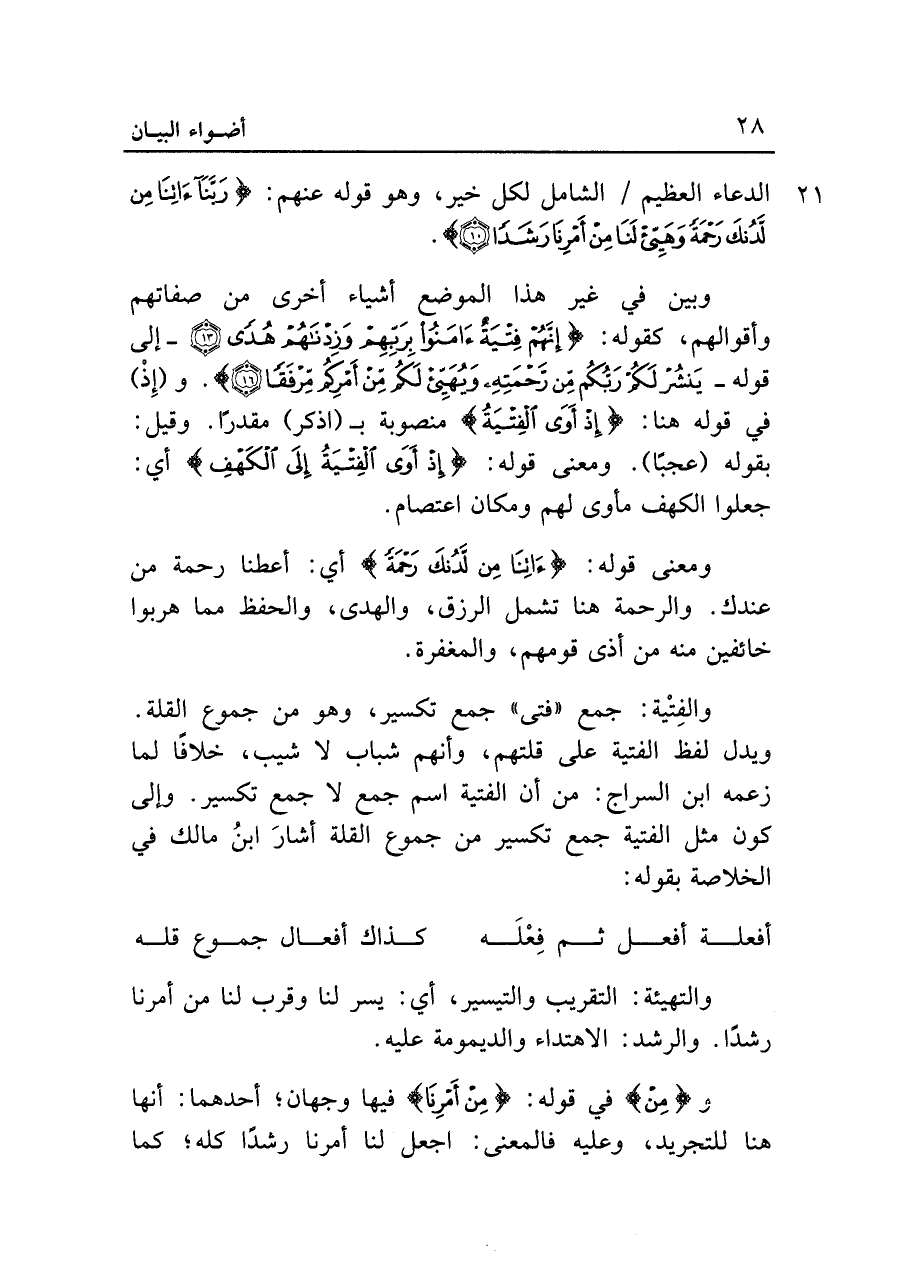 ٢٨ أضواء البيان
٢١ الدعاء العظيم / الشامل لكل خير، وهو قوله عنهم: ﴿رَبَّنَآ ءَاتِنَا مِن
لَّدُنكَ رَحْمَةً وَهَيِّئْ لَنَا مِنْ أَمْرِنَا رَشَدًا ۝١٠﴾.
وبين في غير هذا الموضع أشياء أخرى من صفاتهم
وأقوالهم، كقوله: ﴿إِنَّهُمْ فِتْيَةٌ ءَامَنُواْ بِرَبِّهِمْ وَزِدْنَٰهُمْ هُدًى ۝١٣ ـ إلى
قوله ـ يَنشُرْ لَكُمْ رَبُّكُم مِّن رَّحْمَتِهِۦ وَيُهَيِّئْ لَكُم مِّنْ أَمْرِكُم مِّرْفَقًا ۝١٦﴾. و (إِذْ)
في قوله هنا: ﴿إِذْ أَوَى ٱلْفِتْيَةُ﴾ منصوبة بـ (اذكر) مقدرًا. وقيل:
بقوله (عجبًا). ومعنى قوله: ﴿إِذْ أَوَى ٱلْفِتْيَةُ إِلَى ٱلْكَهْفِ﴾ أي:
جعلوا الكهف مأوى لهم ومكان اعتصام.
ومعنى قوله: ﴿ءَاتِنَا مِن لَّدُنكَ رَحْمَةً﴾ أي: أعطنا رحمة من
عندك. والرحمة هنا تشمل الرزق، والهدى، والحفظ مما هربوا
خائفين منه من أذى قومهم، والمغفرة.
والفِتْية: جمع «فتى» جمع تكسير، وهو من جموع القلة.
ويدل لفظ الفتية على قلتهم، وأنهم شباب لا شيب، خلافًا لما
زعمه ابن السراج: من أن الفتية اسم جمع لا جمع تكسير. وإلى
كون مثل الفتية جمع تكسير من جموع القلة أشارَ ابنُ مالك في
الخلاصة بقوله:
أفعلـــة أفعـــل ثـــم فِعْلَـــه كـــذاك أفعـــال جمـــوع قلـــه
والتهيئة: التقريب والتيسير، أي: يسر لنا وقرب لنا من أمرنا
رشدًا. والرشد: الاهتداء والديمومة عليه.
و ﴿مِنْ﴾ في قوله: ﴿مِنْ أَمْرِنَا﴾ فيها وجهان؛ أحدهما: أنها
هنا للتجريد، وعليه فالمعنى: اجعل لنا أمرنا رشدًا كله؛ كما